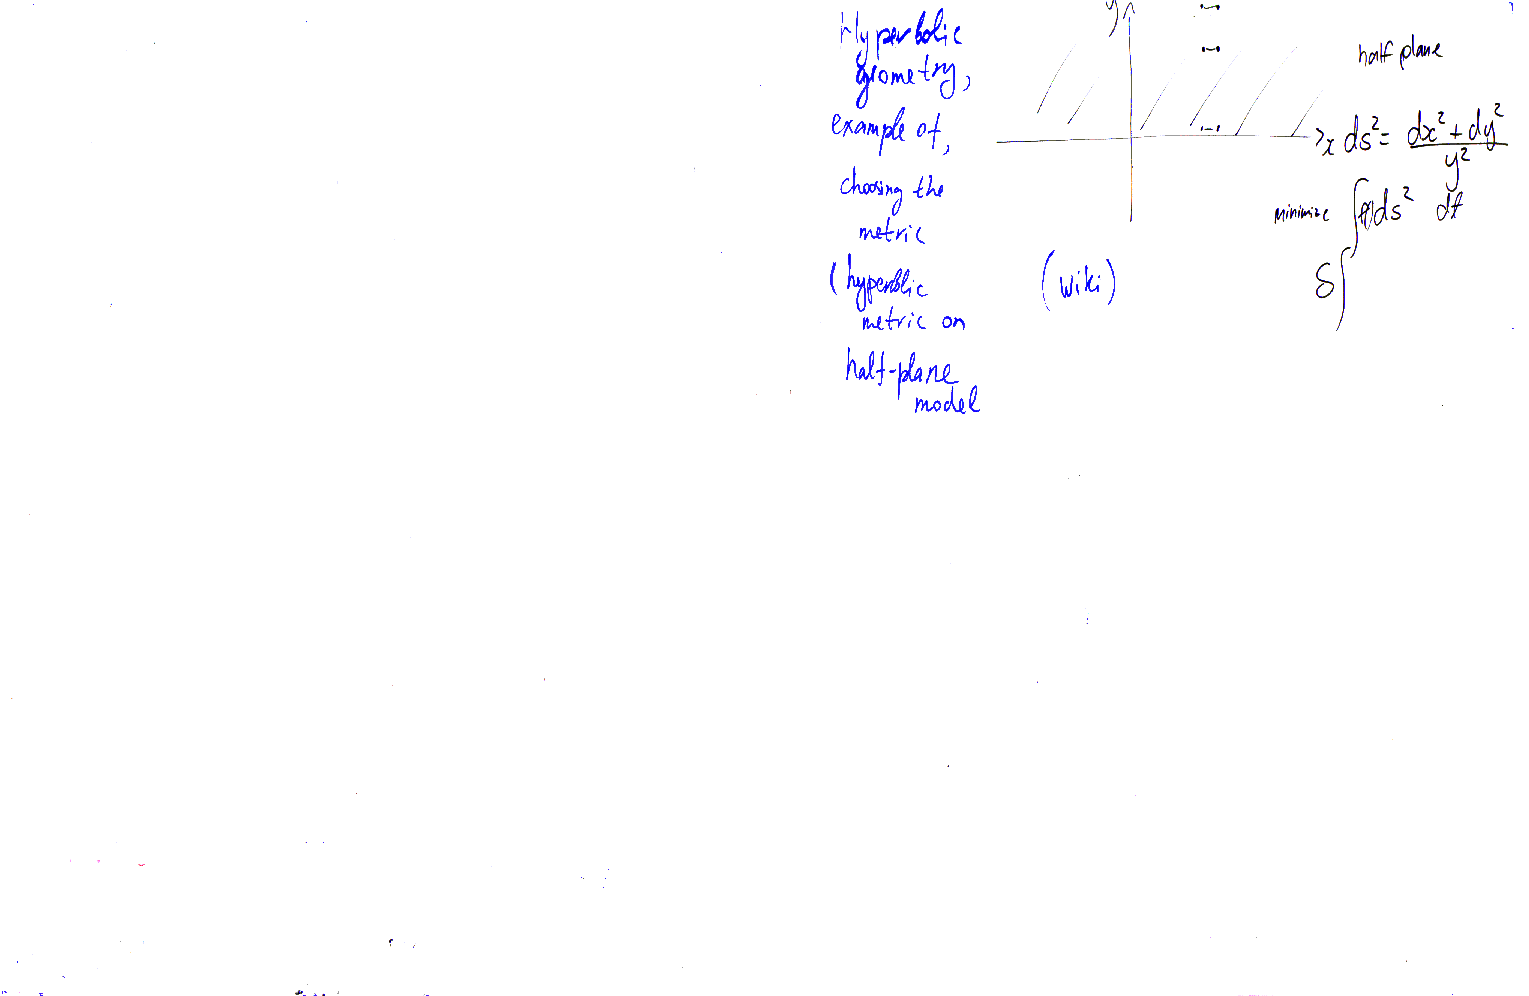 Hyperbolic
geometry,
example of,
choosing the
metric
(hyperbolic
metric on
half-plane
model
(wiki)
y
half plane
x ds² = dx² + dy² / y²
minimize ∫ ds² dt
δ∫